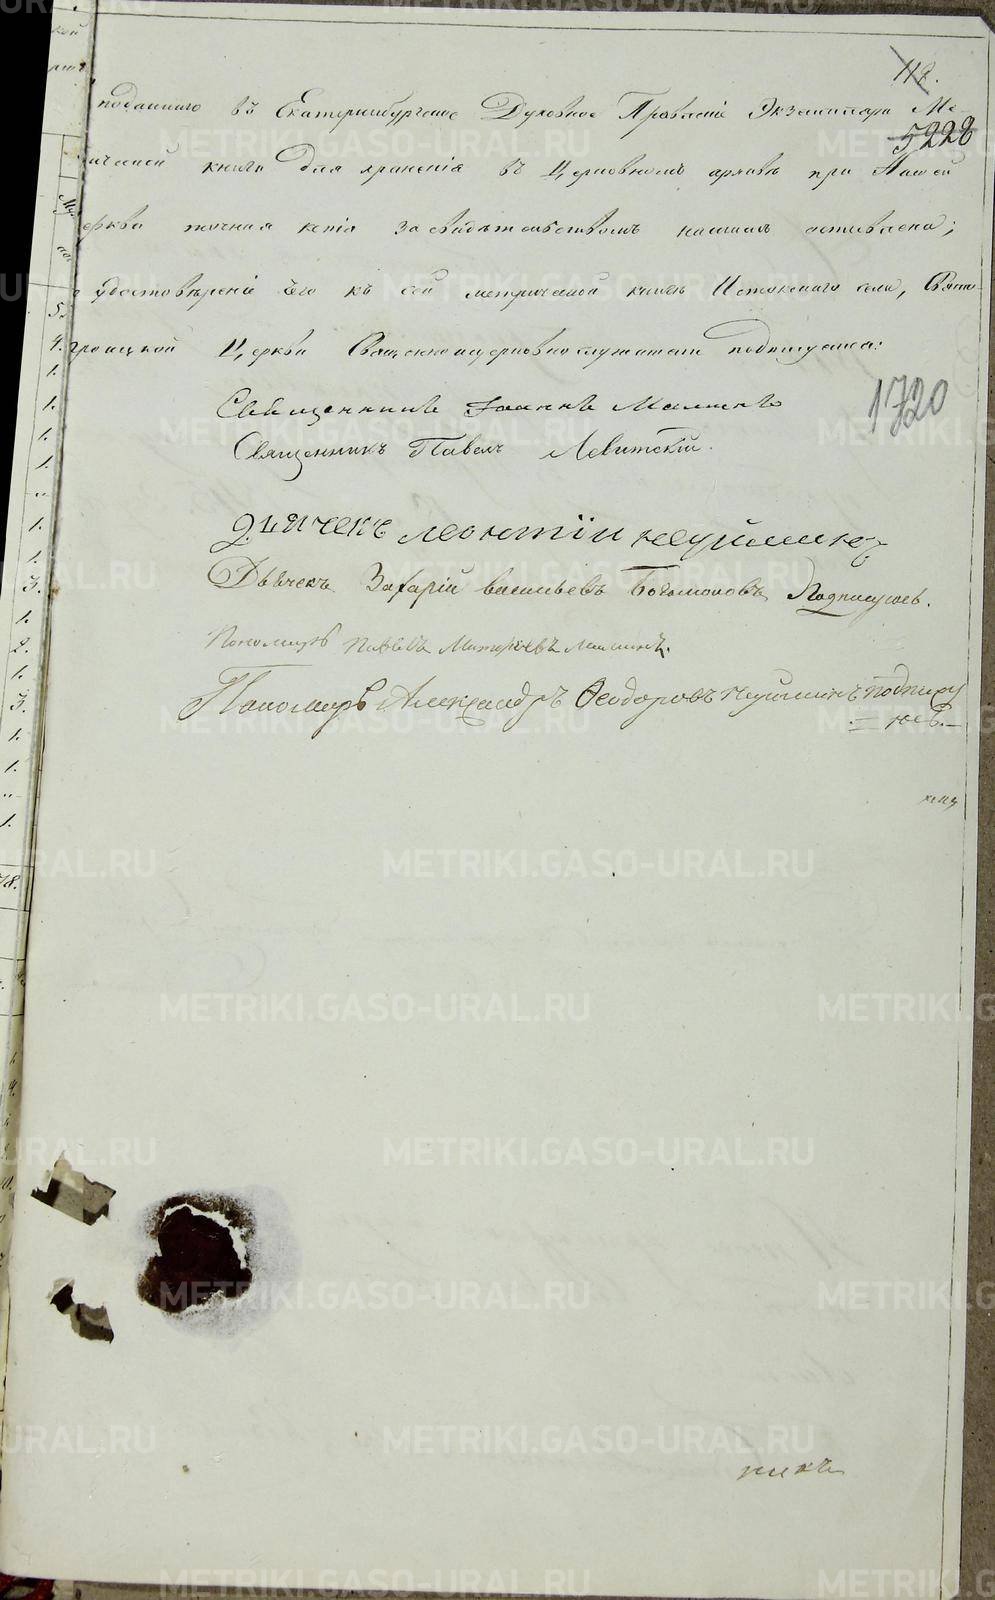 118.
поданнаго въ Екатеринбургское Духовное Правленіе Экземпляра Ме-
5228
рической книги для храненія въ Церковномъ архивѣ при Нашей
еркви точная копія засвидѣтельствомъ нашимъ оставлена;
удостовѣреніи чего къ сей метрической книгѣ Истокскаго села, Свято-
троицкой Церкви Священноцерковнослужители подписуемся:
1720
Священникъ Іоаннъ
Священникъ Павелъ Левитскій.
Дьячекъ Леонтіи
Дьячекъ Захарій васильевъ Богомоловъ Подписуюсь.
Пономарь Павелъ
Пономарь Александръ Ѳеодоровъ подпису
= юсь.=
METRIKI.GASO-URAL.RU